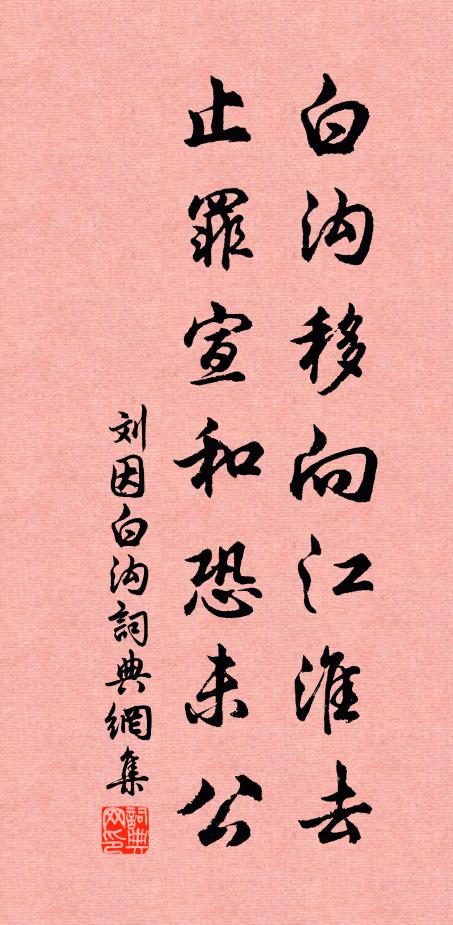 白沟移向江淮去
止罪宣和恐未公
刘因白沟詞典網集
詞典网印